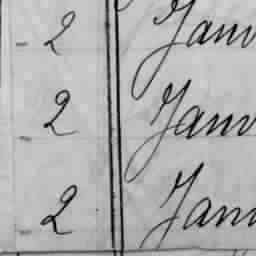 2 Janv
2 Janv
2 Janv